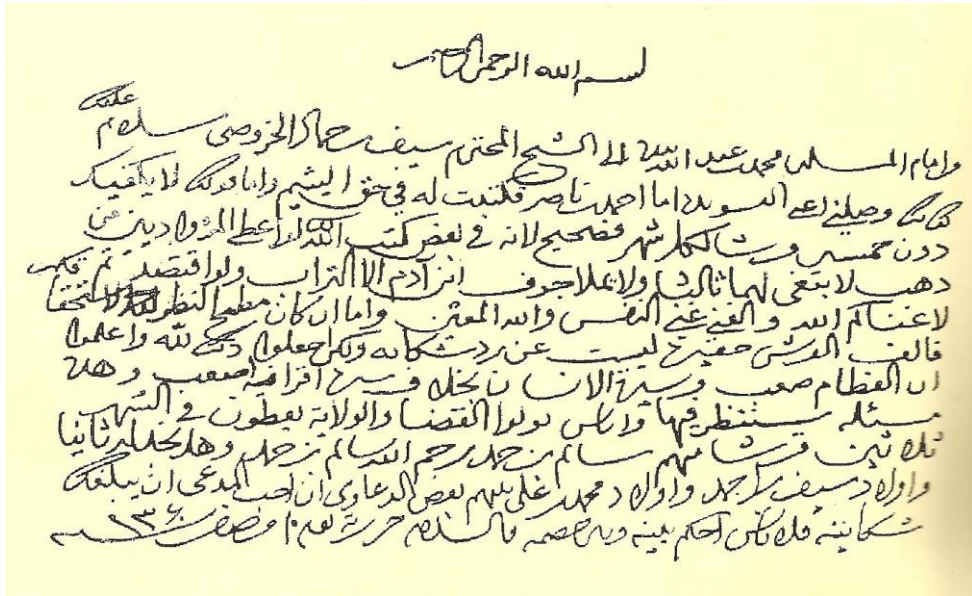 بسم الله الرحمن الرحيم
من امام المسلمين محمد بن عبد الله الى الشيخ المحترم سيف بن حماد الخروصي سلام عليك
كتابك وصلني اما احمد بن ناصر فكتبت له في حق اليتيم واما قولك لا يكفيك
دون خمسين قرشا لكل شهر فصحيح لانه في بعض كتب الله لو اعطي المرؤ واديين من
ذهب لابتغى لهما ثالثا ولا يملا جوف ابن آدم الا التراب ولو اقتصد
لاغناكم الله والغنى غنى النفس والله المعين واما ان كان مطمح النظر
فالف القرش حقير ليست عن رد شكايه ولكن اجعلوا ذلك لله واعلموا
ان الفطام صعب وسيرة الانسان بخلاف سيرة اقرانه اصعب وهذه
مسئلة يستنظر فيها واناس تولوا القضا والولاية يعطون في الشهر
ثلاثين قرشا منهم سالم بن حمد رحم الله سالم بن حمد وهل يخلد ثانيا
واولاد سيف بن احمد واولاد محمد بن علي بينهم بعض الدعاوي ان احب المدعي ان يبلغك
شكايته فلا باس احكم بينه وبين خصمه والسلام حرر يوم من صفر سنه